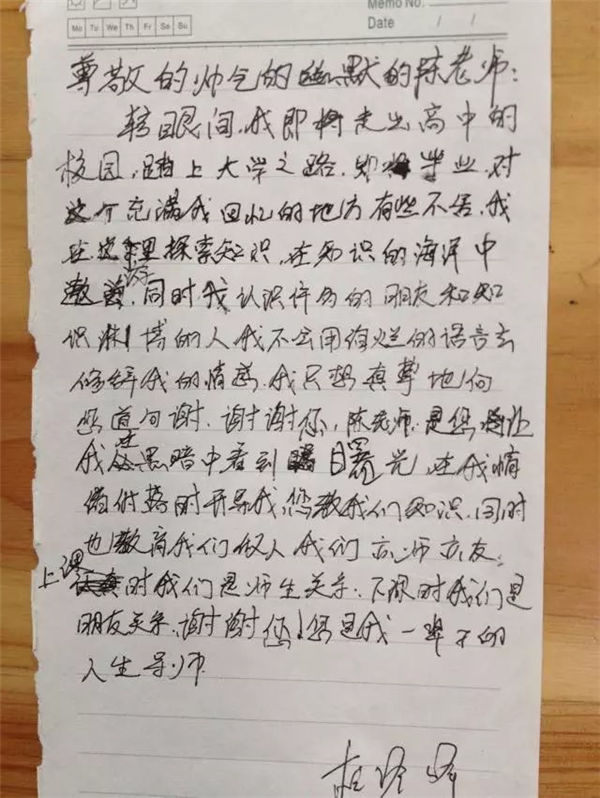 Memo No.
Mo Tu We Th Fr Sa Su
Date / /
尊敬的帅气的幽默的陈老师:
转眼间,我即将走出高中的
校园,踏上大学之路,即将毕业,对
这个充满我回忆的地方有些不舍,我
在这里探索知识,在知识的海洋中
遨游,同时我认识许多的朋友和知
识渊博的人我不会用绚烂的语言去
修辞我的情感,我只想真挚地向
您道句谢,谢谢您,陈老师,是您让
我从黑暗中看到曙光,在我情
绪低落时开导我,您教我们知识,同时
也教育我们做人我们亦师亦友,
上课时我们是师生关系,下课时我们是
朋友关系,谢谢您!您是我一辈子的
人生导师